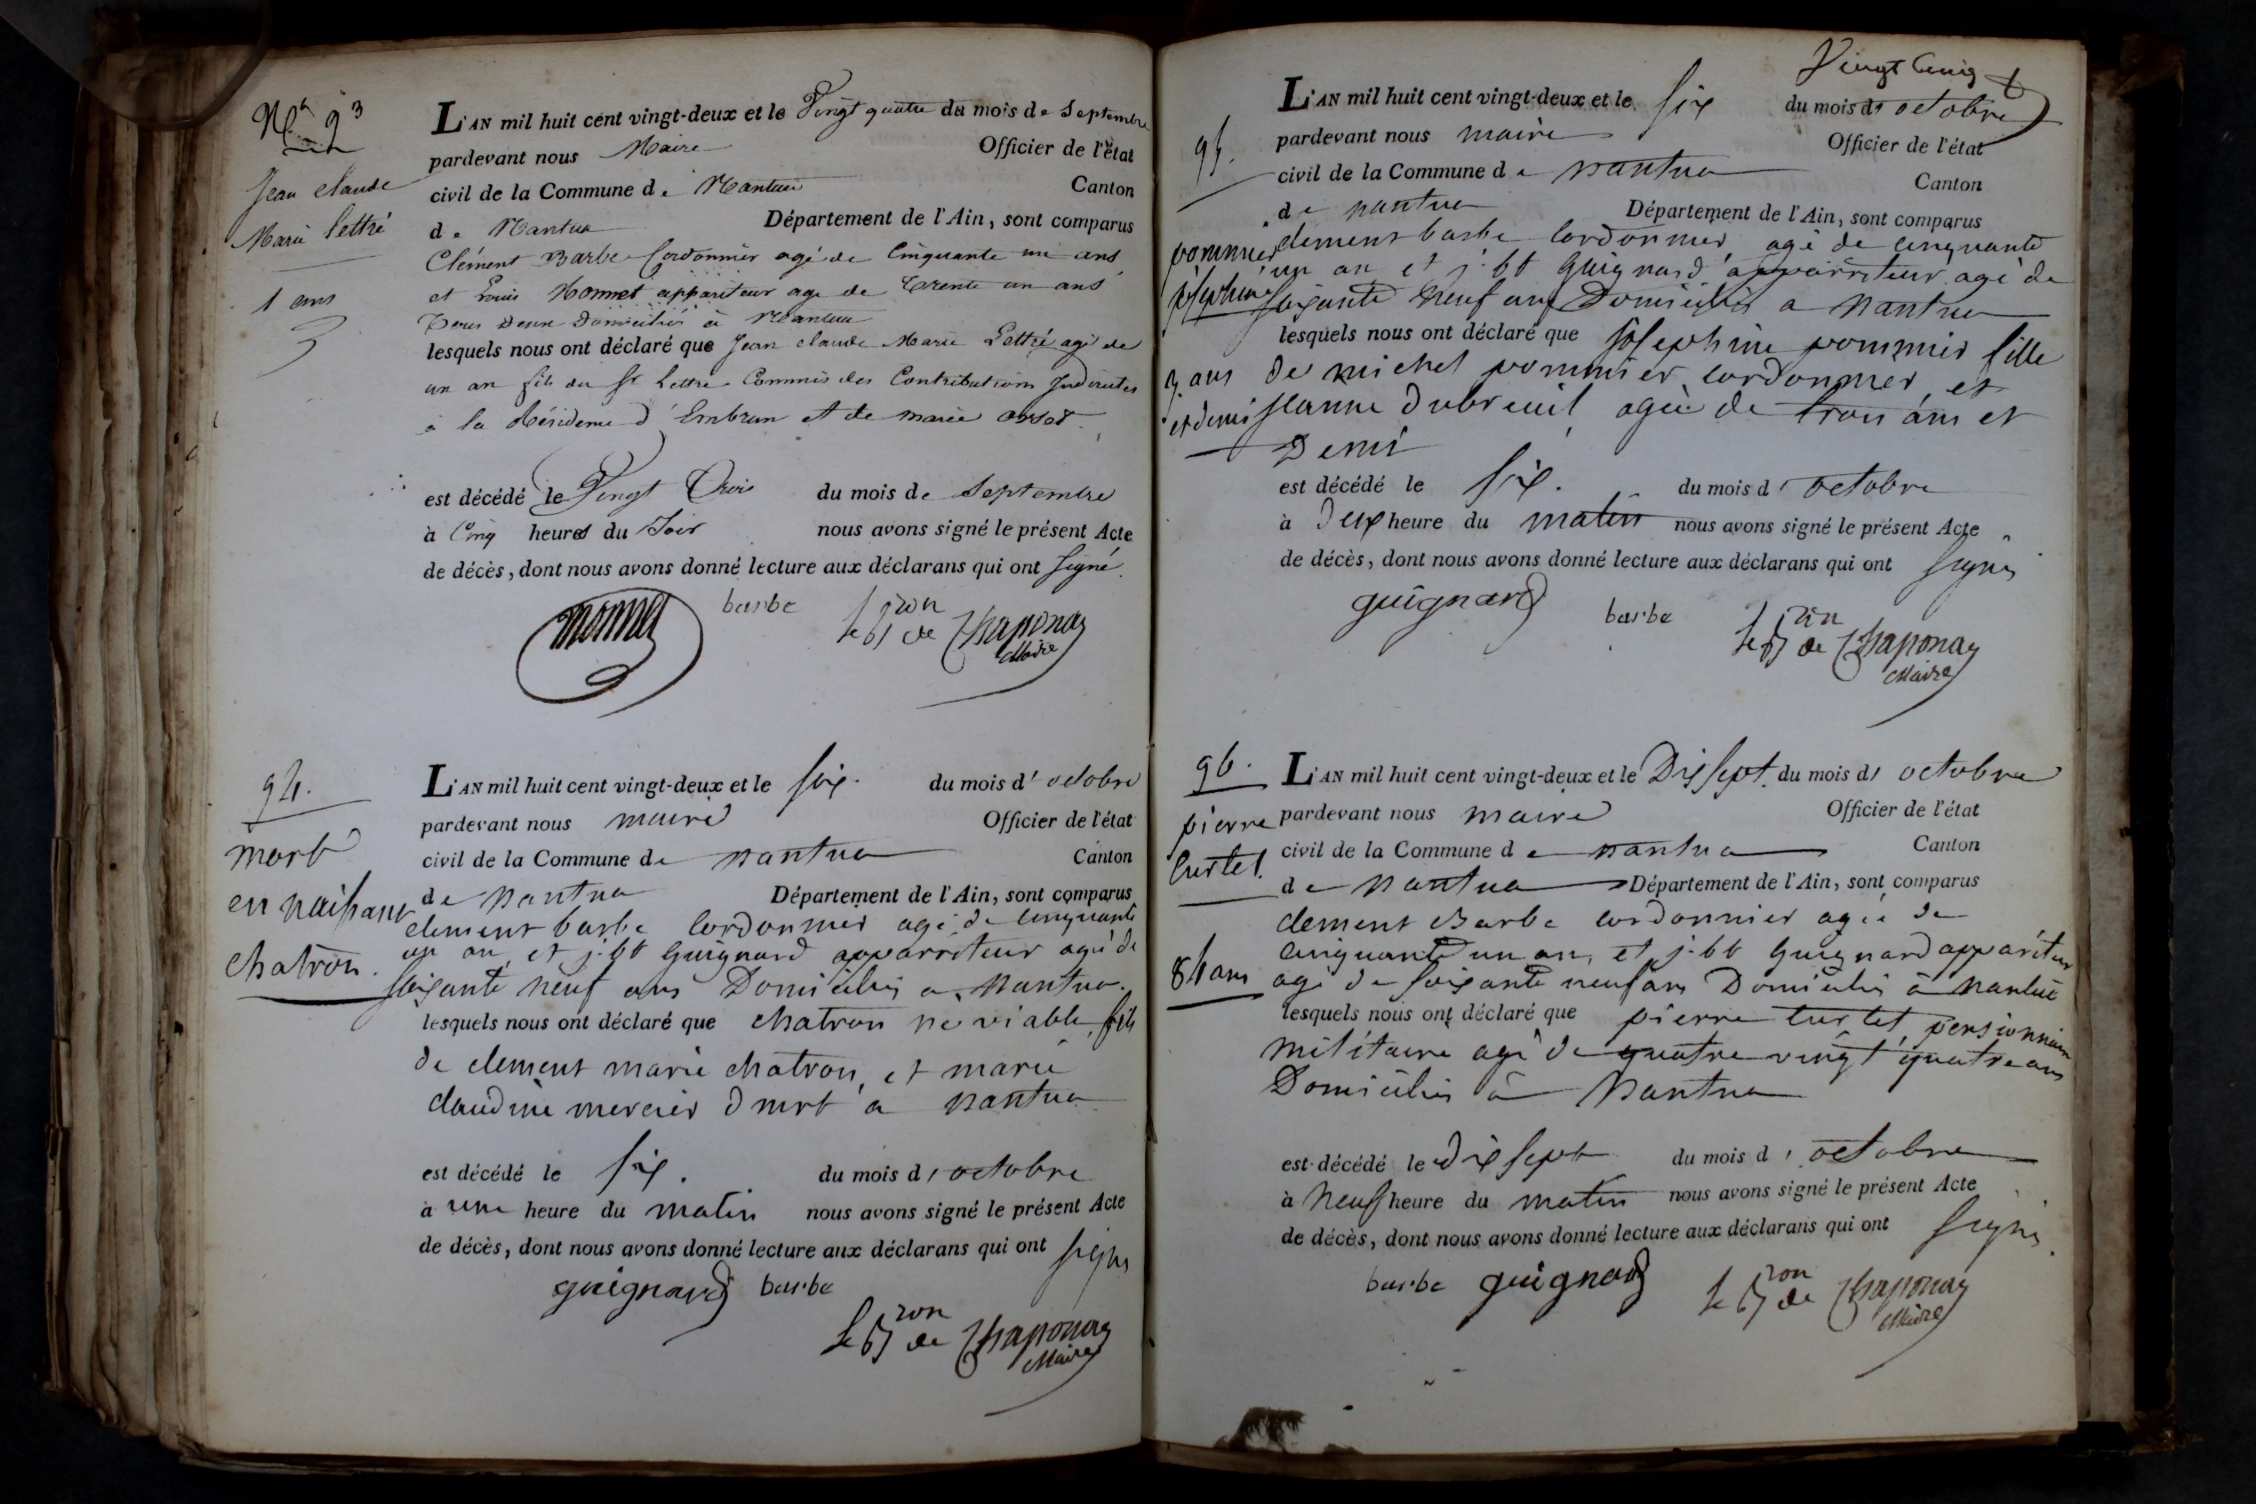 Nº 93
Jean claude
Marie Lettré
1 ans
L'AN mil huit cent vingt-deux et le Vingt quatre du mois de Septembre
pardevant nous Maire Officier de l'état
civil de la Commune de Nantua Canton
de Nantua Département de l'Ain, sont comparus
Clément Barbe Cordonnier agé de Cinquante un ans
et Louis Monnet appariteur age de Trente un ans
Tous Deux Domiciliés à Nantua
lesquels nous ont déclaré que Jean claude Marie Lettré agé de
un an fils du Sr Lettré Commis des Contributions Indirectes
à la Résidence d'Embrun et de marie
est décédé le Vingt Trois du mois de Septembre
à Cinq heures du Soir nous avons signé le présent Acte
de décès, dont nous avons donné lecture aux déclarans qui ont Signé.
monnet barbe le Bon de Chaponay
Maire
94.
mort
en naissant
chatron.
L'AN mil huit cent vingt-deux et le six. du mois d'octobre
pardevant nous maire Officier de l'état
civil de la Commune de nantua Canton
de nantua Département de l'Ain, sont comparus
clement barbe cordonnier agé de cinquante
un an, et j. bt guignard apparriteur agé de
soixante neuf ans Domiciliés a nantua.
lesquels nous ont déclaré que chatron né viable, fils
de clement marie chatron, et marie
claudine mercier dmrt a nantua
est décédé le six. du mois d'octobre
à une heure du matin nous avons signé le présent Acte
de décès, dont nous avons donné lecture aux déclarans qui ont signés
guignard barbe
le Bon de Chaponay
Maire
Vingt Cinq
95.
pommier
joséphine
3 ans
et demis
L'AN mil huit cent vingt-deux et le six du mois d'octobre
pardevant nous maire Officier de l'état
civil de la Commune de nantua Canton
de nantua Département de l'Ain, sont comparus
clement barbe cordonnier agé de cinquante
un an et j. bt guignard apparriteur agé de
soixante neuf ans Domiciliés a nantua
lesquels nous ont déclaré que josephine pommier fille
de michel pommier cordonnier et
jeanne dubreuil, agée de trois ans et
Demis
est décédé le six. du mois d'octobre
à deux heure du matin nous avons signé le présent Acte
de décès, dont nous avons donné lecture aux déclarans qui ont signés
guignard barbe le Bon de Chaponay
Maire
96.
pierre
Curtet.
84 ans
L'AN mil huit cent vingt-deux et le Dix sept. du mois d'octobre
pardevant nous maire Officier de l'état
civil de la Commune de nantua Canton
de nantua Département de l'Ain, sont comparus
clement Barbe cordonnier agé de
cinquante un an, et j. bt guignard appariteur
agé de soixante neuf ans Domiciliés à nantua
lesquels nous ont déclaré que pierre curtet, pensionnaire
militaire agé de quatre vingt quatre ans
Domiciliés à Nantua
est décédé le dix sept du mois d'octobre
à neuf heure du matin nous avons signé le présent Acte
de décès, dont nous avons donné lecture aux déclarans qui ont signés.
barbe guignard le Bon de Chaponay
Maire